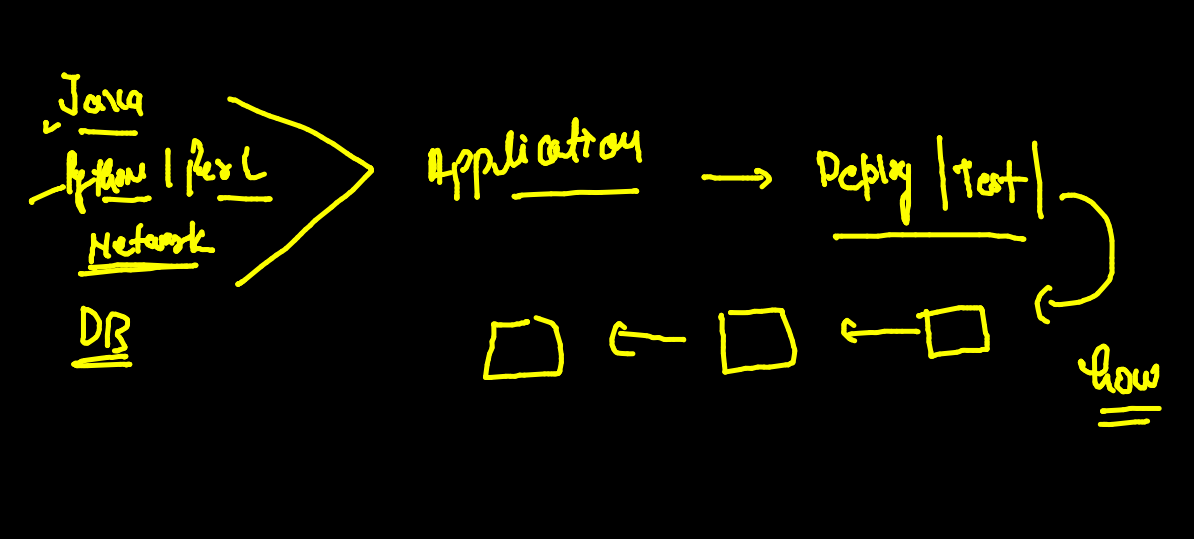 Java
Python | Perl
Network
DB
Application
Deploy | Test |
how